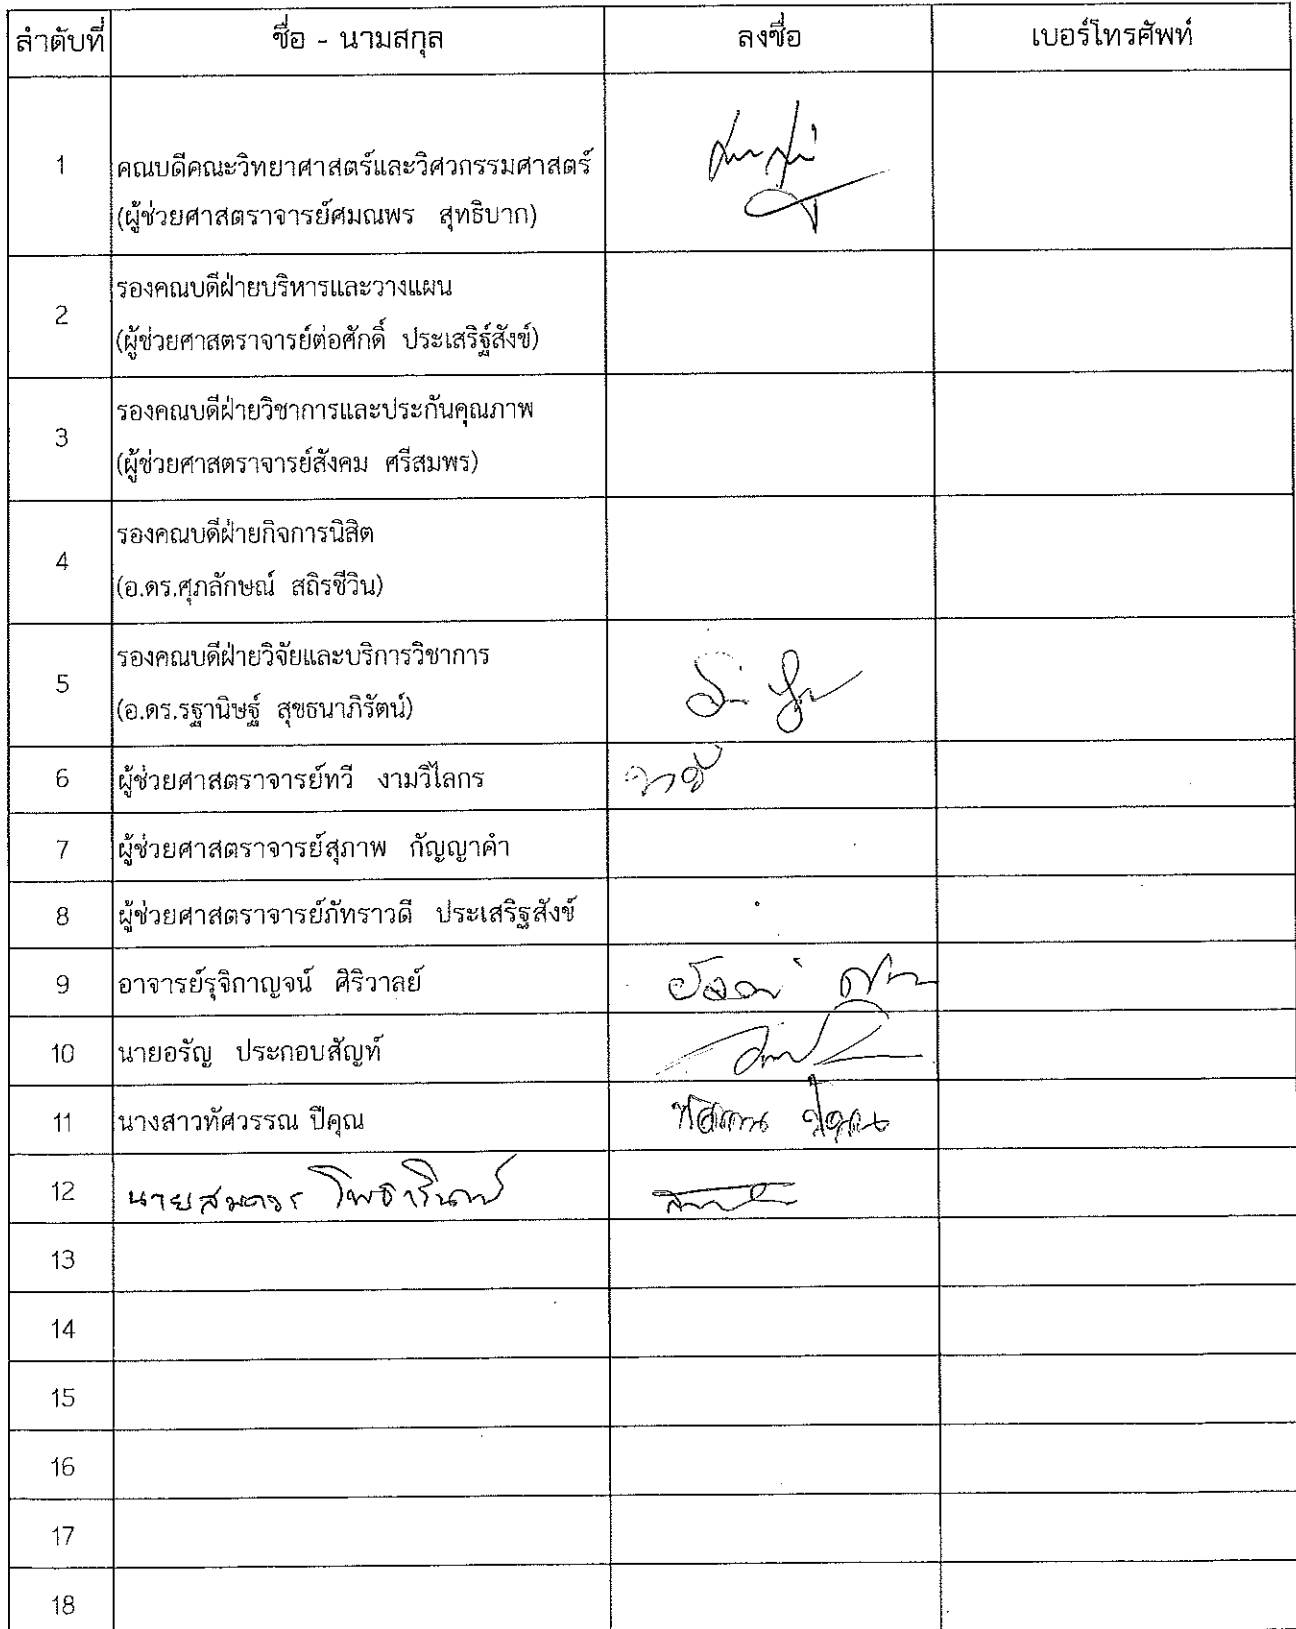 ลำดับที่ ชื่อ - นามสกุล ลงชื่อ เบอร์โทรศัพท์
1 คณบดีคณะวิทยาศาสตร์และวิศวกรรมศาสตร์
(ผู้ช่วยศาสตราจารย์ศมณพร สุทธิบาก)
รองคณบดีฝ่ายบริหารและวางแผน
2
(ผู้ช่วยศาสตราจารย์ต่อศักดิ์ ประเสริฐ์สังข์)
รองคณบดีฝ่ายวิชาการและประกันคุณภาพ
3
(ผู้ช่วยศาสตราจารย์สังคม ศรีสมพร)
รองคณบดีฝ่ายกิจการนิสิต
4
(อ.ดร.ศุภลักษณ์ สถิรชีวิน)
รองคณบดีฝ่ายวิจัยและบริการวิชาการ
5
(อ.ดร.รฐานิษฐ์ สุขธนาภิรัตน์)
6 ผู้ช่วยศาสตราจารย์ทวี งามวิไลกร
7 ผู้ช่วยศาสตราจารย์สุภาพ กัญญาคำ
8 ผู้ช่วยศาสตราจารย์ภัทราวดี ประเสริฐสังข์
9 อาจารย์รุจิกาญจน์ ศิริวาลย์
10 นายอรัญ ประกอบสัญท์
11 นางสาวทัศวรรณ ปีคุณ
12 นายสมควร
13
14
15
16
17
18